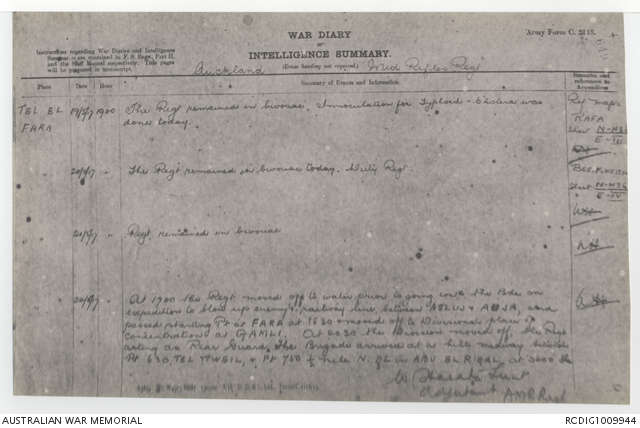 WAR DIARY
or
INTELLIGENCE SUMMARY.
Army Form C. 2118.
Instructions regarding War Diaries and Intelligence
Summaries are contained in F. S. Regs., Part II.
and the Staff Manual respectively. Title pages
will be prepared in manuscript.
Auckland Mtd Rifles Regt
(Erase heading not required.)
Place Date Hour Summary of Events and Information Remarks and
references to
Appendices
TEL EL FARA 19/5/17 1900 The Regt remained in bivouac. Innoculation for Typhoid & Cholera was
done today.
Ref maps
RAFA
20/5/17 The Regt remained in bivouac today. Duty Regt.
21/5/17 Regt remained in bivouac
At 1700 the Regt moved off to water prior to going with the Bde on
expedition to blow up enemy's railway line between ASLUJ & AUJA, and
passed starting Pt at FARA at 1830 & moved off to Divisional place of
concentration at GAMLI. At 2030 the Division moved off, the Regt
acting as Rear Guard. The Brigade arrived at a hill midway between
Pt 630, TEL ITWEIL, & Pt 720 ½ mile N. of in ABU EL
Lieut
Adjutant AMR Regt
AUSTRALIAN WAR MEMORIAL
RCDIG1009944